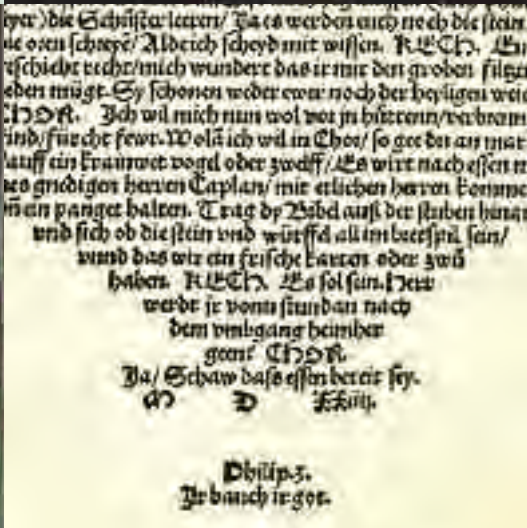 yer) die Schůster leeren/ Ja es werden auch noch die stein
die oren schreyē/ Alde ich scheyd mit wissen. KÖCH. Es
geschicht recht/ mich wundert das ir mit den groben filtzen
reden mügt. Sy schonen weder ewer noch der heyligen weich
CHOR. Jch wil mich nun wol vor jn hütten/ verbrennt
kind/ fürcht fewr. Wolā ich wil in Chor/ so gee du an mar
kauff ein kramwet vogel oder zwelff/ Es wirt nach essen m
nes gnedigen herren Caplan/ mit etlichen herren komme
vn̄ ein panget halten. Trag dy Bibel auß der stuben hinau
vnd sich ob die stein vnd würffel all im bretspil sein/
vnnd das wir ein frische karten oder zwů
haben. KÖCH. Es sol sein. Herr
werdt jr vonn stundan nach
dem vmbgang heimher
geen? CHOR.
Ja/ Schaw das essen bereit sey.
M D XXiiij.
Philip. 3.
Jr bauch ir got.